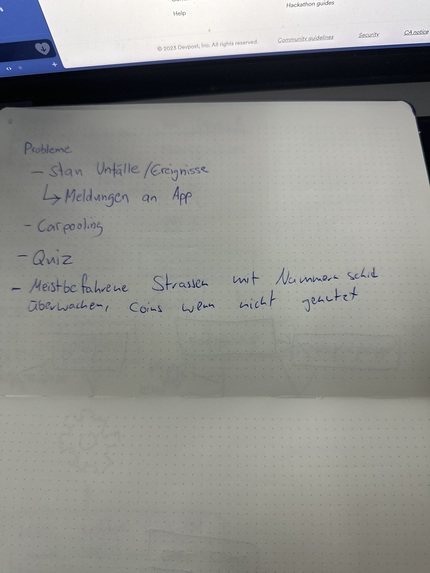 Hackathon guides
Help
© 2023 Devpost, Inc. All rights reserved.
Community guidelines
Security
CA notice
Probleme
- Stau Unfälle/Ereignisse
↳ Meldungen an App
- Carpooling
- Quiz
- Meistbefahrene Strassen mit Nummern schild
überwachen, Coins wenn nicht genutzt